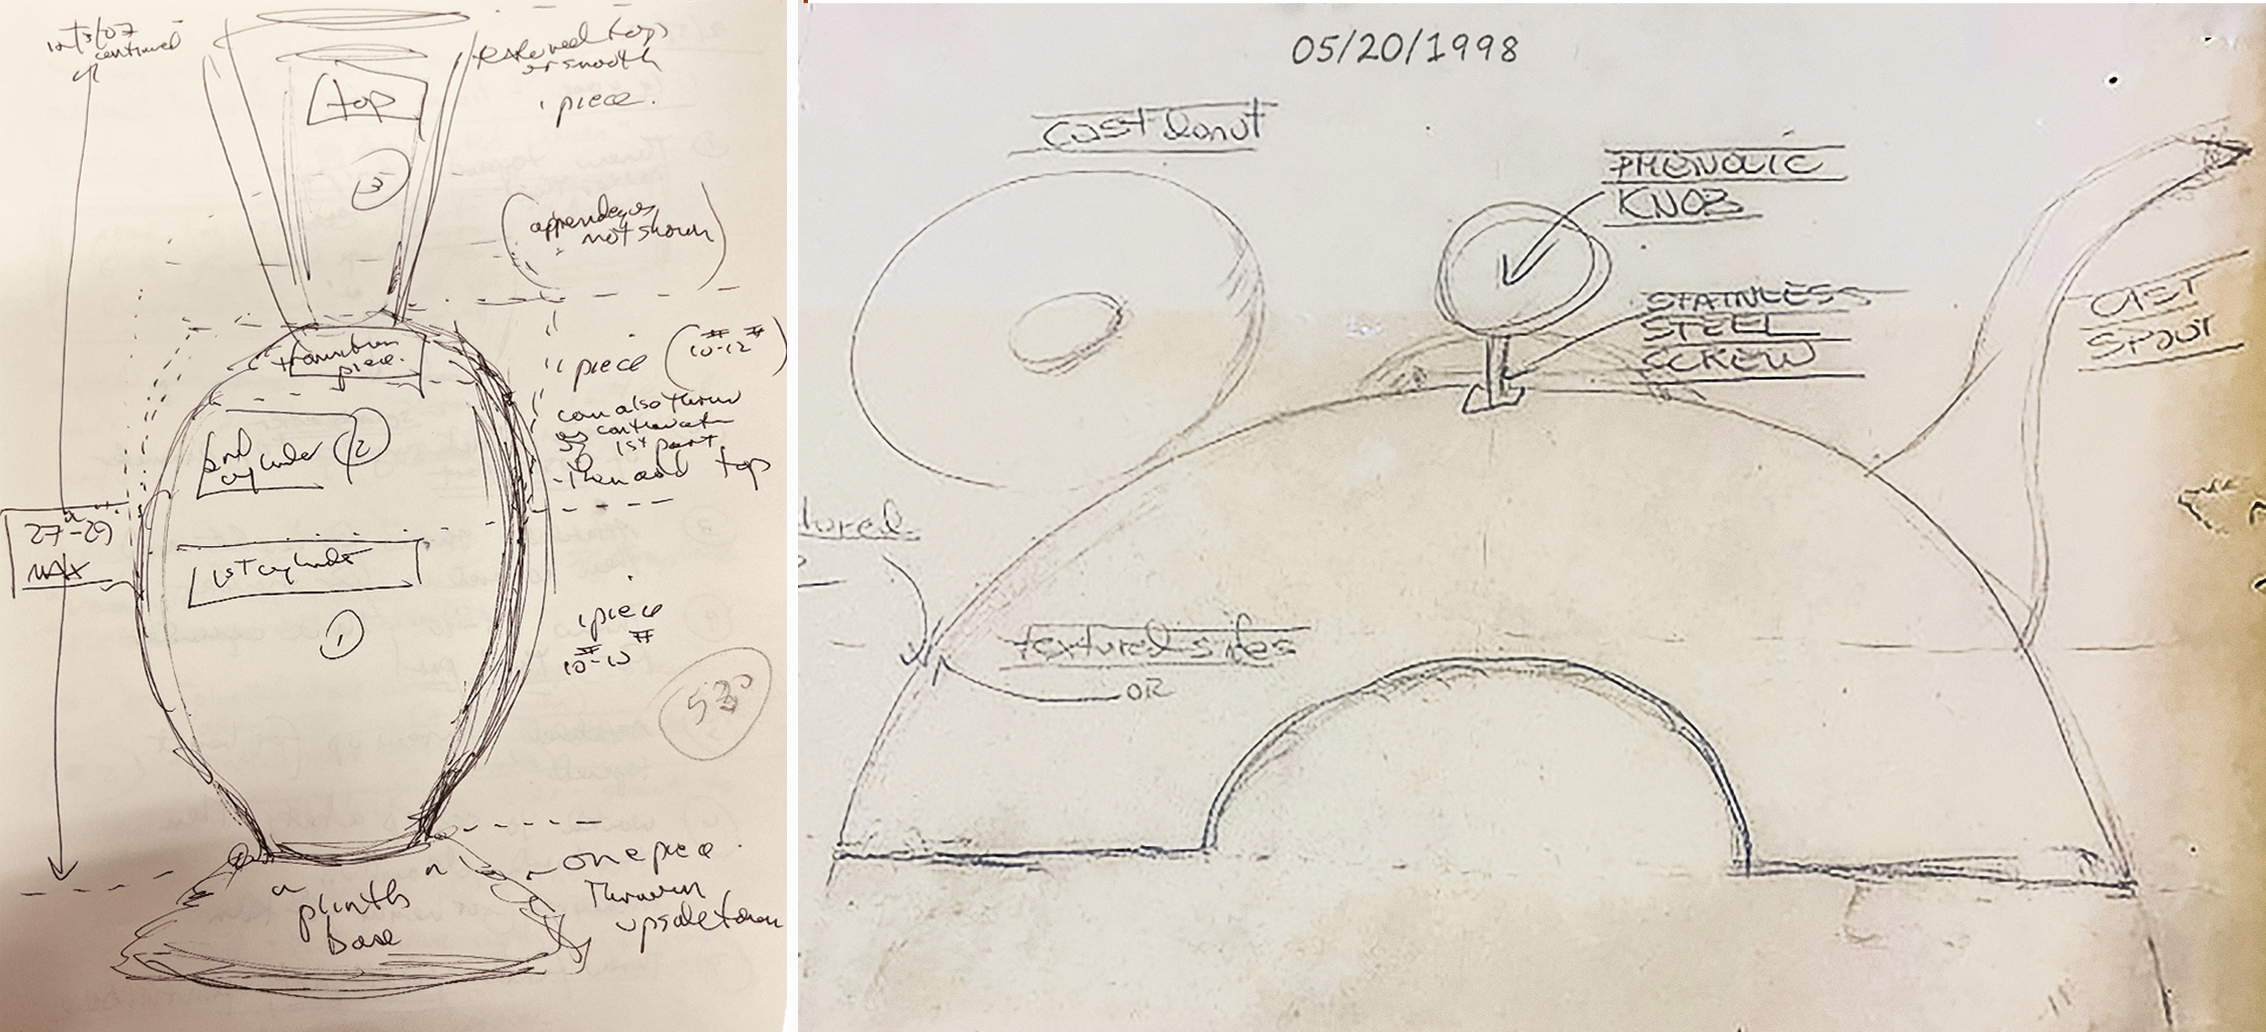 continued
top
3
textured tops
or smooth
1 piece.
(appendages
not shown)
transition
piece.
1 piece (10-12#)
can also throw
as
1st part
- then add top
2nd
cylinder 2
27"-29"
MAX
1st cylinder
1
1 piece
10-12#
a
plinth
base
one piece
thrown
upside down
05/20/1998
Cast donut
PHENOLIC
KNOB
STAINLESS
STEEL
SCREW
CAST
SPOUT
textured sides
OR